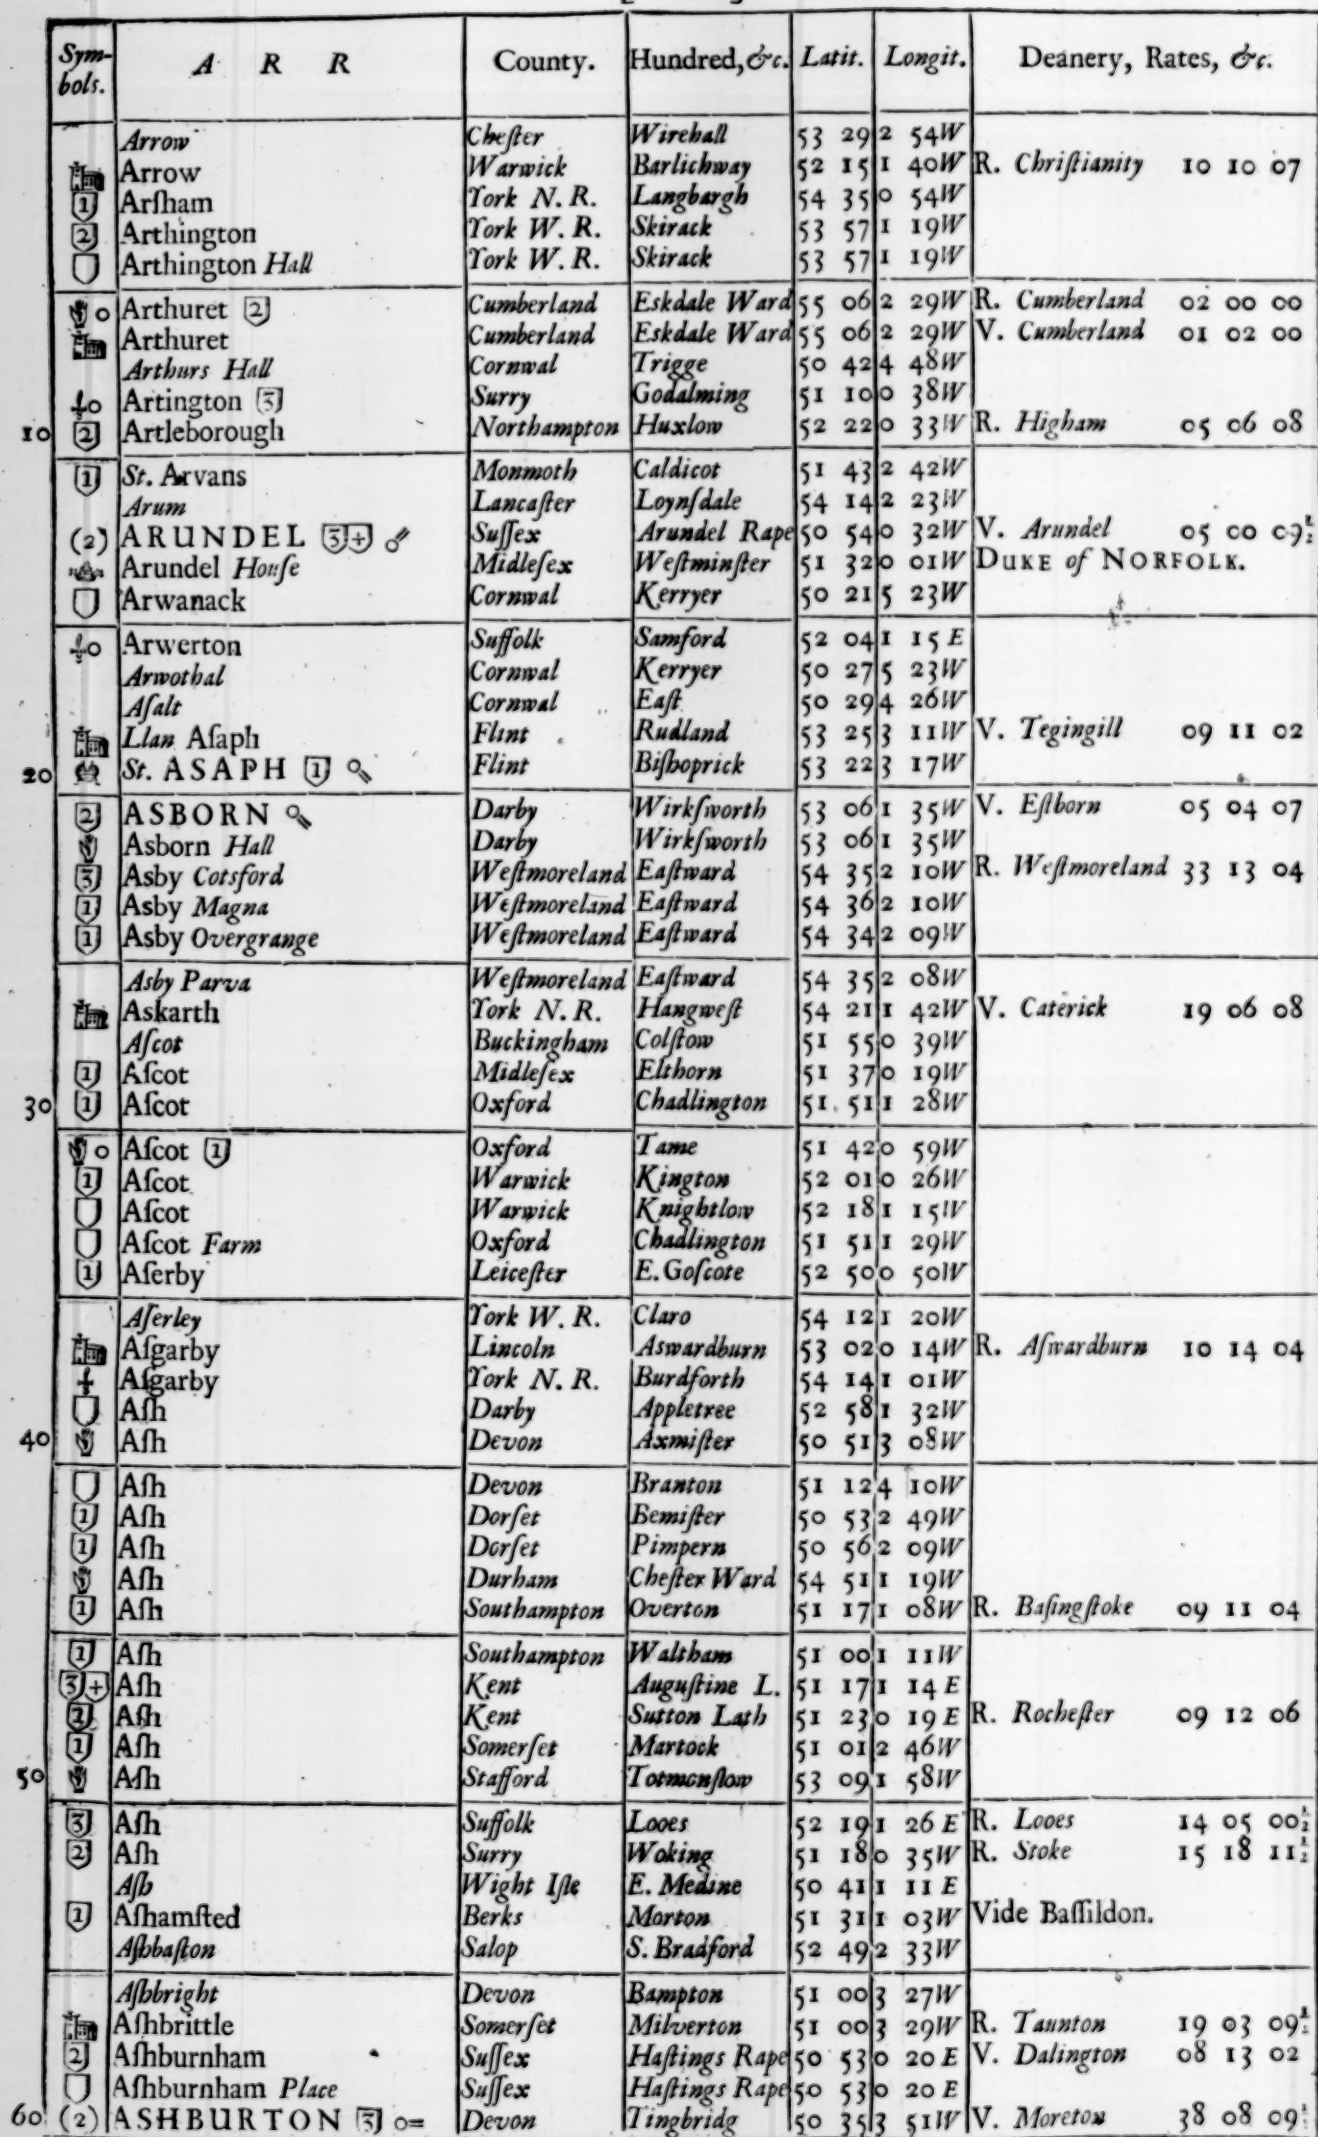 Sym- bols. A R R County. Hundred, &c. Latit. Longit. Deanery, Rates, &c.
Arrow Cheſter Wirehall 53 29 2 54W
Arrow Warwick Barlichway 52 15 1 40W R. Chriſtianity 10 10 07
1 Arſham York N. R. Langbargh 54 35 0 54W
2 Arthington York W. R. Skirack 53 57 1 19W
Arthington Hall York W. R. Skirack 53 57 1 19W
Arthuret 2 Cumberland Eskdale Ward 55 06 2 29W R. Cumberland 02 00 00
Arthuret Cumberland Eskdale Ward 55 06 2 29W V. Cumberland 01 02 00
Arthurs Hall Cornwal Trigge 50 42 4 48W
Artington 3 Surry Godalming 51 10 0 38W
10 2 Artleborough Northampton Huxlow 52 22 0 33W R. Higham 05 06 08
1 St. Arvans Monmoth Caldicot 51 43 2 42W
Arum Lancaſter Loynſdale 54 14 2 23W
(2) ARUNDEL 3+ Suſſex Arundel Rape 50 54 0 32W V. Arundel 05 00 09½
Arundel Houſe Midleſex Weſtminſter 51 32 0 01W DUKE of NORFOLK.
Arwanack Cornwal Kerryer 50 21 5 23W
Arwerton Suffolk Samford 52 04 1 15 E
Arwothal Cornwal Kerryer 50 27 5 23W
Aſalt Cornwal Eaſt 50 29 4 26W
Llan Aſaph Flint Rudland 53 25 3 11W V. Tegingill 09 11 02
20 St. ASAPH 1 Flint Biſhoprick 53 22 3 17W
2 ASBORN Darby Wirkſworth 53 06 1 35W V. Eſtborn 05 04 07
Asborn Hall Darby Wirkſworth 53 06 1 35W
3 Asby Cotsford Weſtmoreland Eaſtward 54 35 2 10W R. Weſtmoreland 33 13 04
1 Asby Magna Weſtmoreland Eaſtward 54 36 2 10W
1 Asby Overgrange Weſtmoreland Eaſtward 54 34 2 09W
Asby Parva Weſtmoreland Eaſtward 54 35 2 08W
Askarth York N. R. Hangweſt 54 21 1 42W V. Caterick 19 06 08
Aſcot Buckingham Colſtow 51 55 0 39W
1 Aſcot Midleſex Elthorn 51 37 0 19W
30 1 Aſcot Oxford Chadlington 51 51 1 28W
Aſcot 1 Oxford Tame 51 42 0 59W
1 Aſcot Warwick Kington 52 01 0 26W
Aſcot Warwick Knightlow 52 18 1 15W
Aſcot Farm Oxford Chadlington 51 51 1 29W
1 Aſerby Leiceſter E. Goſcote 52 50 0 50W
Aſerley York W. R. Claro 54 12 1 20W
Aſgarby Lincoln Aswardburn 53 02 0 14W R. Aſwardburn 10 14 04
Aſgarby York N. R. Burdforth 54 14 1 01W
Aſh Darby Appletree 52 58 1 32W
40 Aſh Devon Axmiſter 50 51 3 08W
Aſh Devon Branton 51 12 4 10W
1 Aſh Dorſet Bemiſter 50 53 2 49W
1 Aſh Dorſet Pimpern 50 56 2 09W
Aſh Durham Cheſter Ward 54 51 1 19W
1 Aſh Southampton Overton 51 17 1 08W R. Baſingſtoke 09 11 04
1 Aſh Southampton Waltham 51 00 1 11W
3+ Aſh Kent Auguſtine L. 51 17 1 14 E
2 Aſh Kent Sutton Lath 51 23 0 19 E R. Rocheſter 09 12 06
1 Aſh Somerſet Martock 51 01 2 46W
50 Aſh Stafford Totmonſlow 53 09 1 58W
3 Aſh Suffolk Looes 52 19 1 26 E R. Looes 14 05 00½
2 Aſh Surry Woking 51 18 0 35W R. Stoke 15 18 11½
Aſh Wight Iſle E. Medine 50 41 1 11 E
1 Aſhamſted Berks Morton 51 31 1 03W Vide Baſſildon.
Aſhbaſton Salop S. Bradford 52 49 2 33W
Aſhbright Devon Bampton 51 00 3 27W
Aſhbrittle Somerſet Milverton 51 00 3 29W R. Taunton 19 03 09½
2 Aſhburnham Suſſex Haſtings Rape 50 53 0 20 E V. Dalington 08 13 02
Aſhburnham Place Suſſex Haſtings Rape 50 53 0 20 E
60 (2) ASHBURTON 3 Devon Tingbridg 50 35 3 51W V. Moreton 38 08 09½